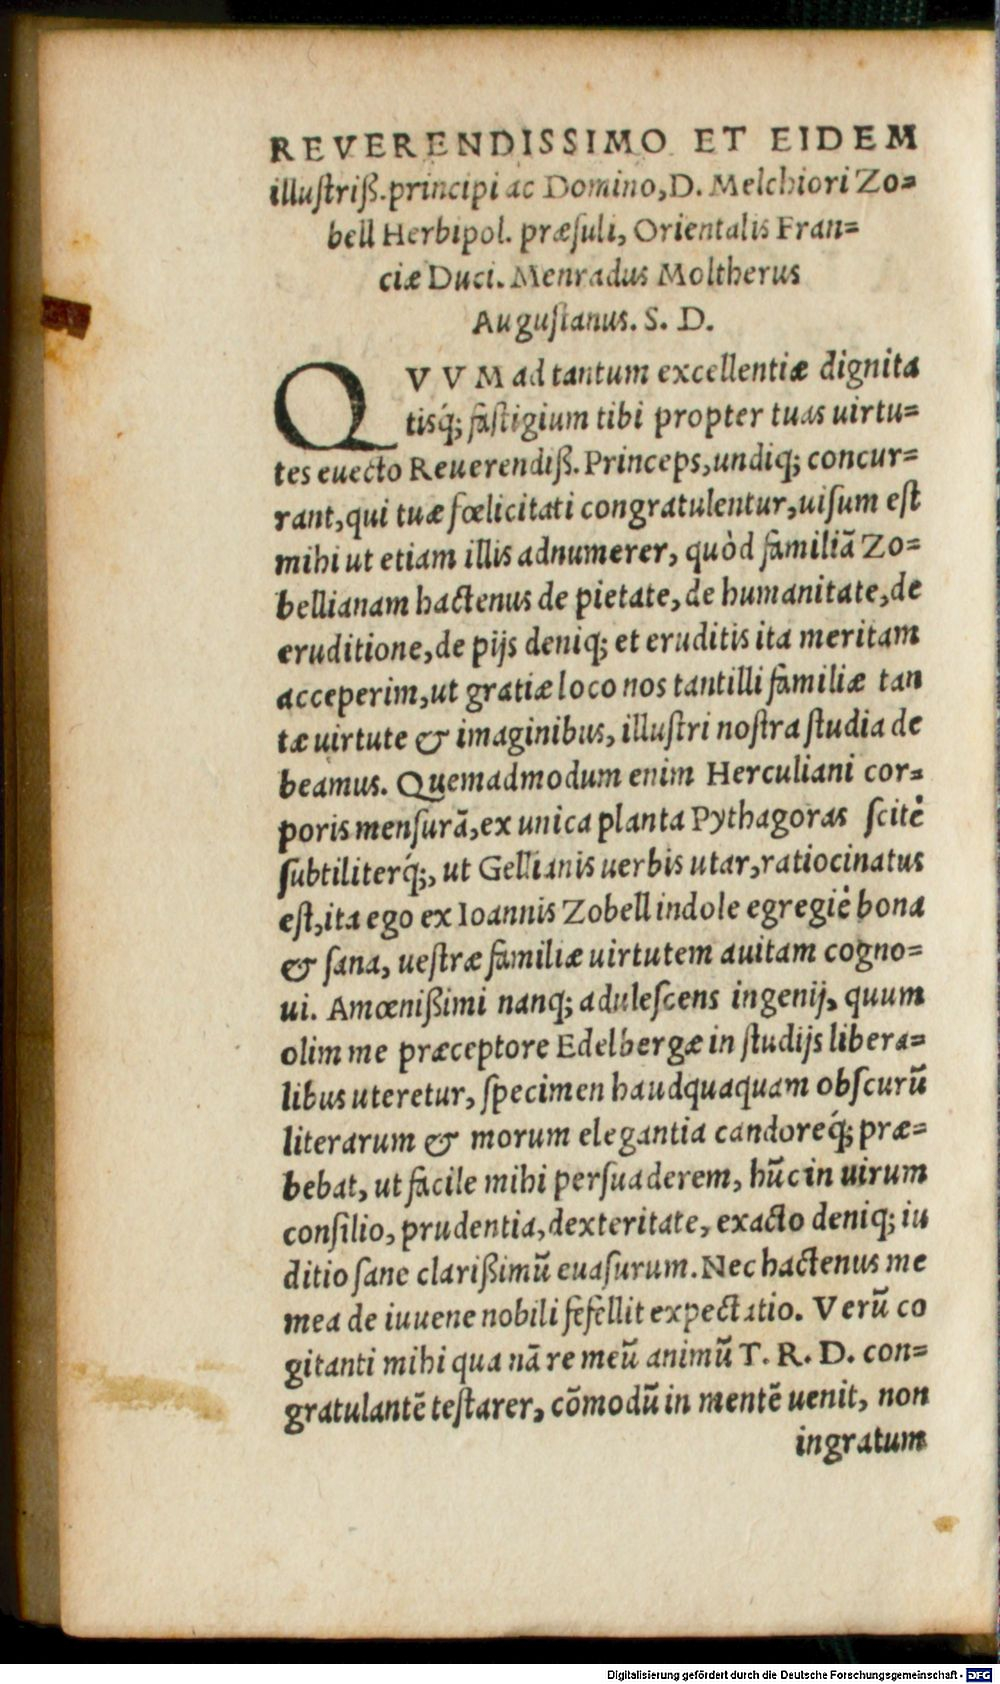 REVERENDISSIMO ET EIDEM
illustriß. principi ac Domino, D. Melchiori Zo=
bell Herbipol. præsuli, Orientalis Fran=
ciæ Duci. Menradus Moltherus
Augustanus. S. D.
QVVM ad tantum excellentiæ dignita
tisq́; fastigium tibi propter tuas uirtu=
tes euecto Reuerendiß. Princeps, undiq; concur=
rant, qui tuæ fœlicitati congratulentur, uisum est
mihi ut etiam illis adnumerer, quòd familiã Zo=
bellianam hactenus de pietate, de humanitate, de
eruditione, de pijs deniq; et eruditis ita meritam
acceperim, ut gratiæ loco nos tantilli familiæ tan
tæ uirtute & imaginibus, illustri nostra studia de
beamus. Quemadmodum enim Herculiani cor=
poris mensurã, ex unica planta Pythagoras scitè
subtiliterq́;, ut Gellianis uerbis utar, ratiocinatus
est, ita ego ex Ioannis Zobell indole egregiè bona
& sana, uestræ familiæ uirtutem auitam cogno=
ui. Amœnißimi nanq; adulescens ingenij, quum
olim me præceptore Edelbergæ in studijs libera=
libus uteretur, specimen haudquaquam obscurũ
literarum & morum elegantia candoreq́; præ=
bebat, ut facile mihi persuaderem, hũc in uirum
consilio, prudentia, dexteritate, exacto deniq; iu
ditio sane clarißimũ euasurum. Nec hactenus me
mea de iuuene nobili fefellit expectatio. Verũ co
gitanti mihi qua nã re meũ animũ T. R. D. con=
gratulantẽ testarer, cõmodũ in mentẽ uenit, non
ingratum
Digitalisierung gefördert durch die Deutsche Forschungsgemeinschaft - DFG